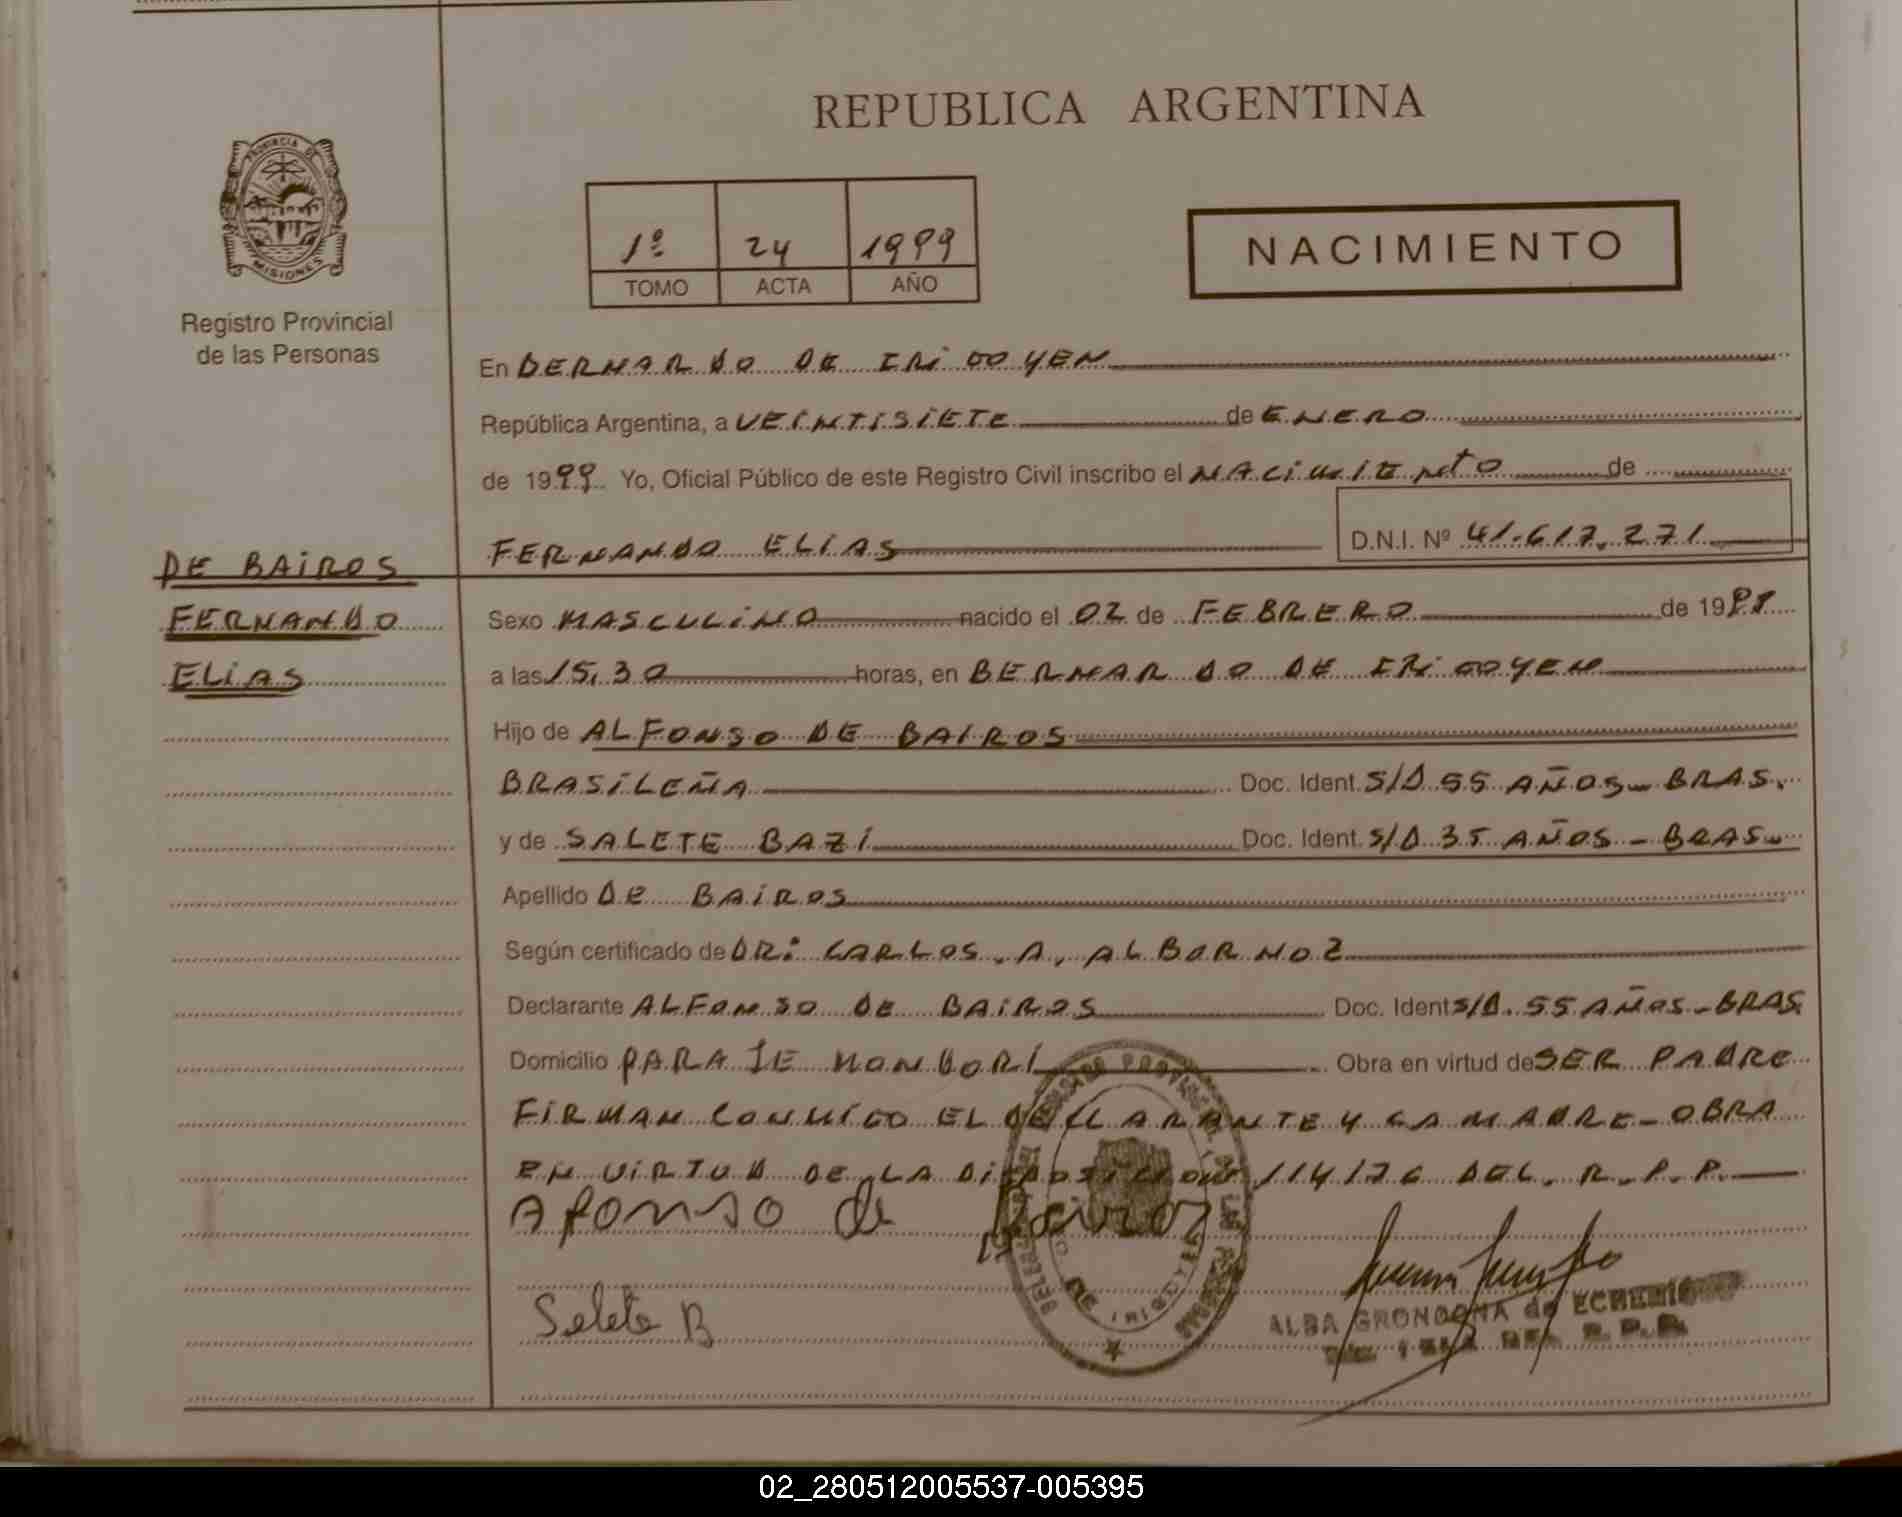 REPUBLICA ARGENTINA
PROVINCIA DE
MISIONES
Registro Provincial
de las Personas
1º 24 1999
TOMO ACTA AÑO
NACIMIENTO
En BERNARDO DE IRIGOYEN
República Argentina, a VEINTISIETE de ENERO
de 1999 Yo, Oficial Público de este Registro Civil inscribo el NACIMIENTO de
FERNANDO ELIAS D.N.I. Nº 41.617.271
DE BAIROS
FERNANDO
ELIAS
Sexo MASCULINO nacido el 02 de FEBRERO de 19
a las 15,30 horas, en BERNARDO DE IRIGOYEN
Hijo de ALFONSO DE BAIROS
BRASILEÑA Doc. Ident. S/D 55 AÑOS - BRAS.
y de SALETE BAZI Doc. Ident. S/D 35 AÑOS - BRAS.
Apellido DE BAIROS
Según certificado de DR: CARLOS. A. ALBORNOZ
Declarante ALFONSO DE BAIROS Doc. Ident S/D. 55 AÑOS - BRAS.
Domicilio PARAJE MONDORI Obra en virtud de SER PADRE
FIRMAN CONMIGO EL DECLARANTE Y LA MADRE - OBRA
EN VIRTUD DE LA DISPOSICION 114/76 DEL. R. P. P.
Afonso de Bairos
Selete B
ALBA GRONDONA de
R. P. P.
02_280512005537-005395